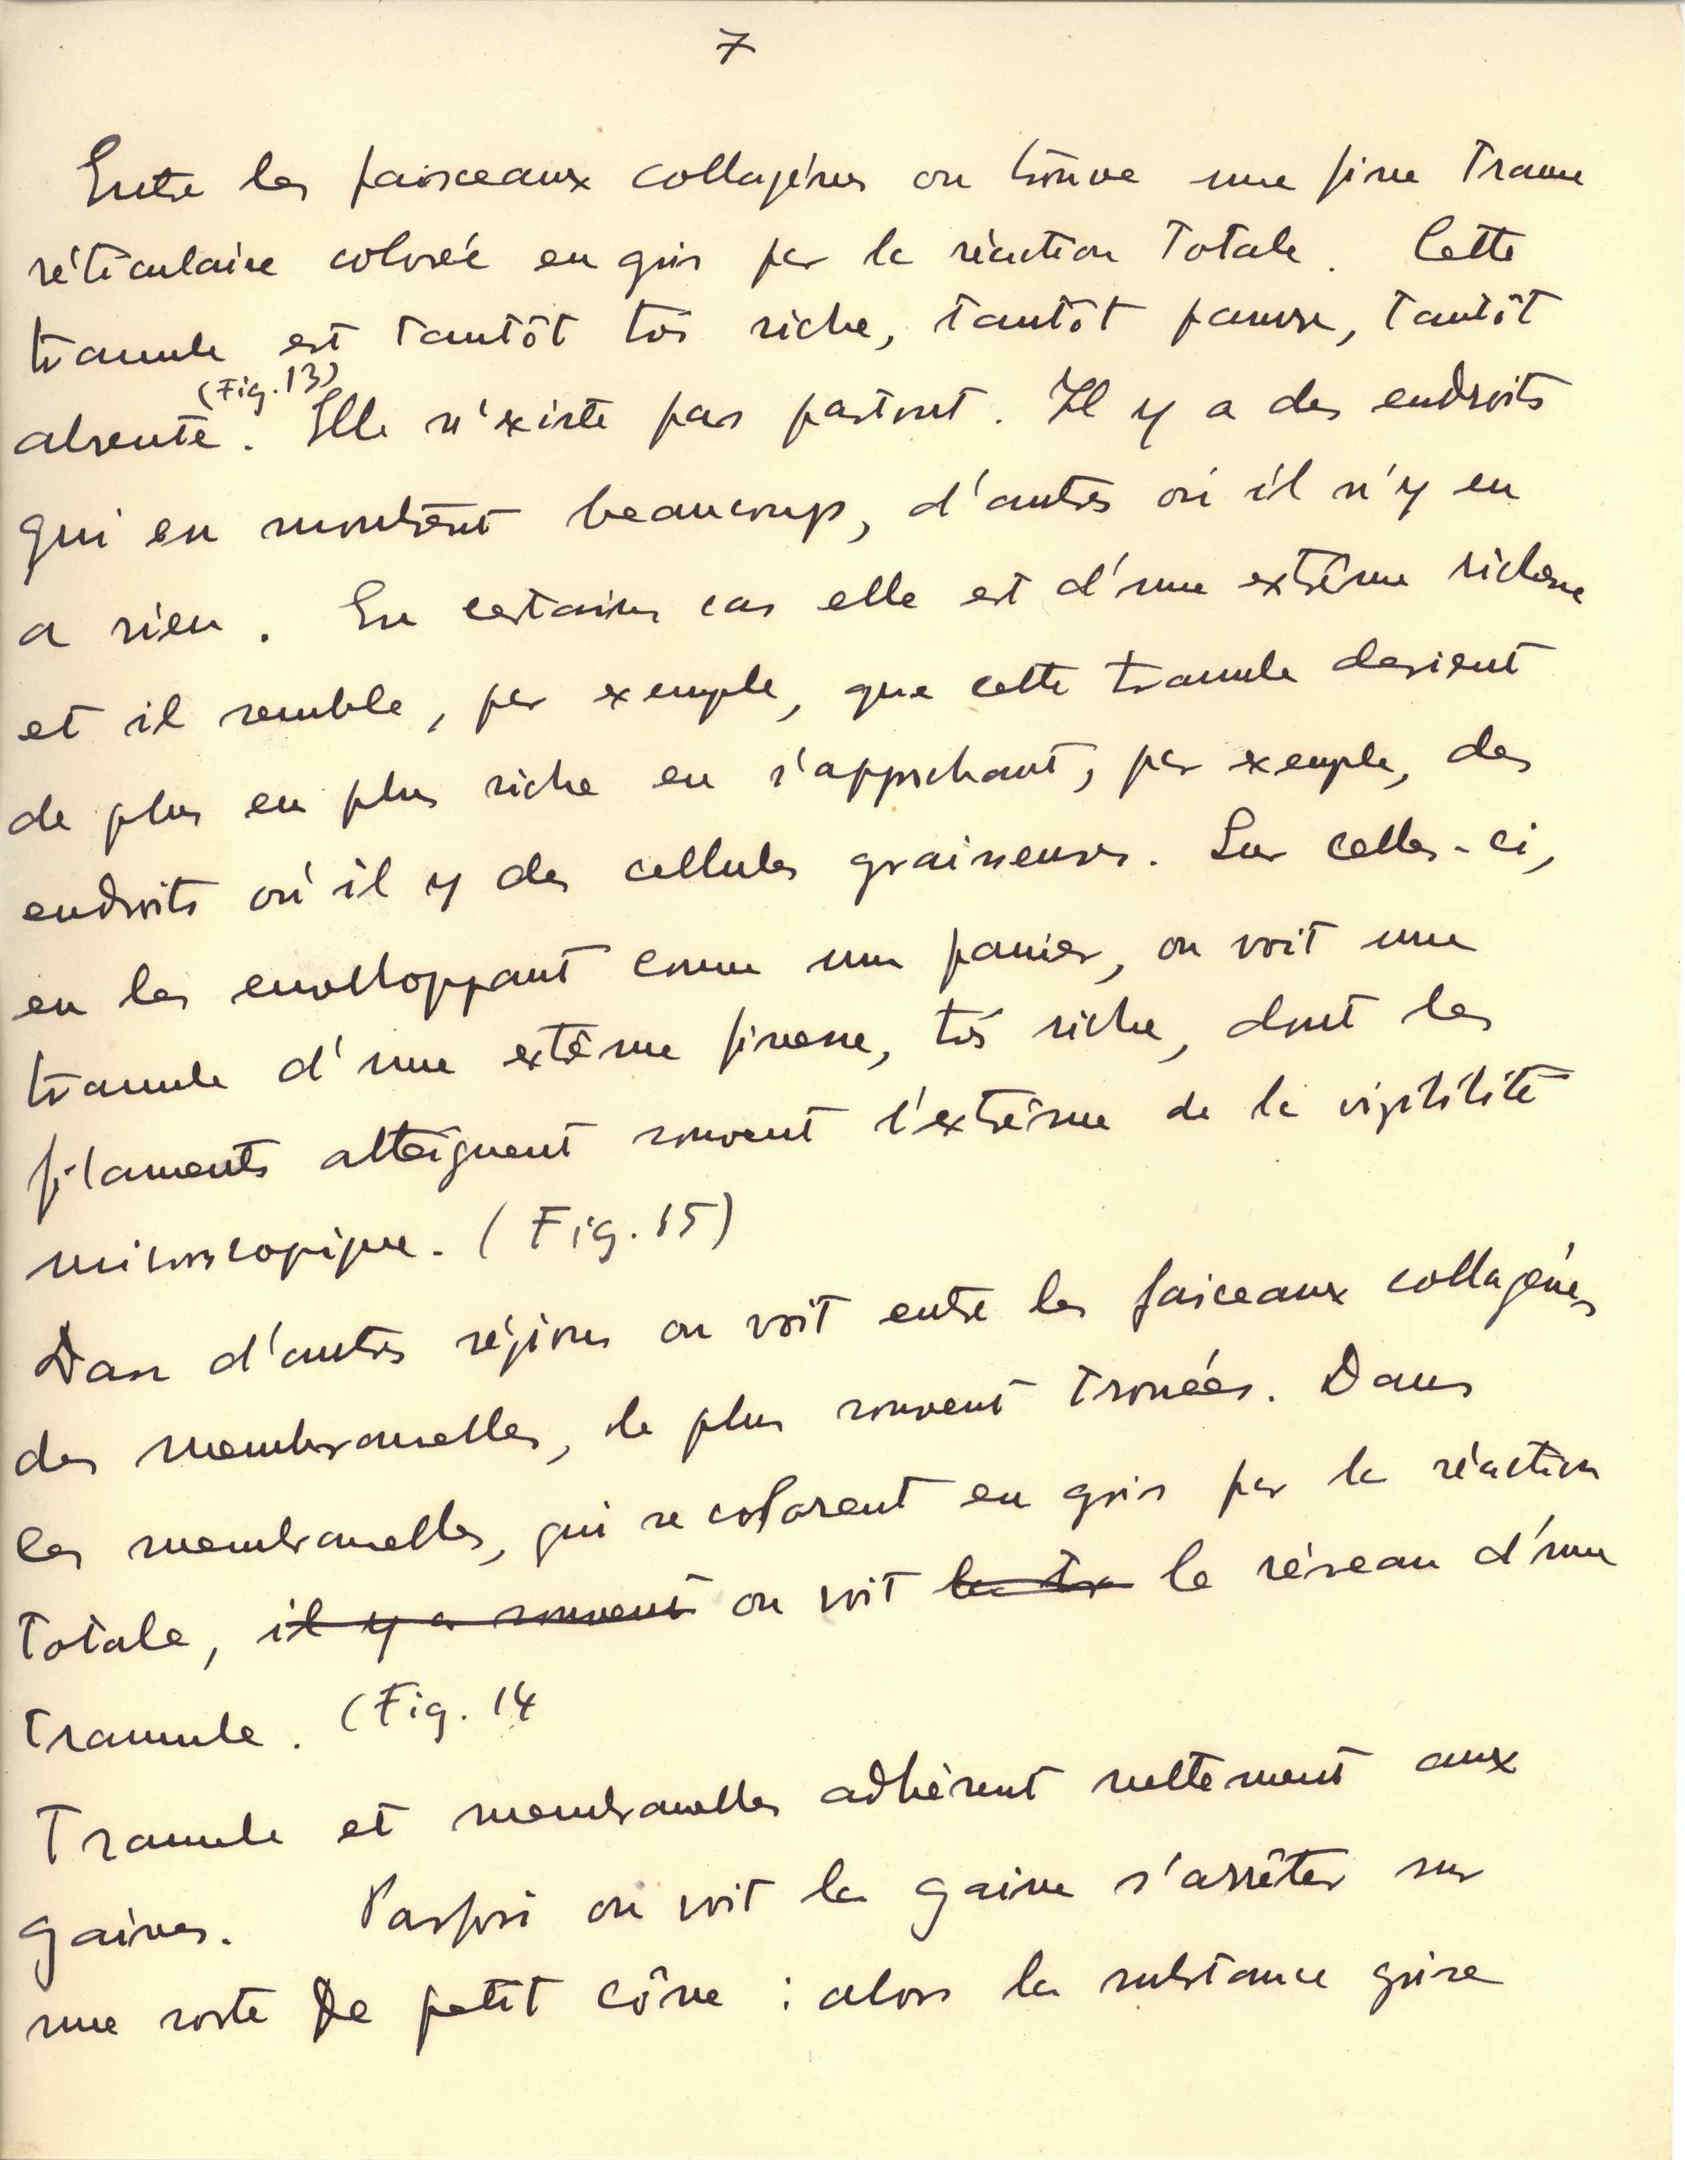 7
Entre les faisceaux collagénes on trouve une fine trame
réticulaire colorée en gris par la réaction totale. Cette
tramule est tantôt très riche, tantôt pauvre, tantôt
(Fig. 13)
absente. Elle n'existe pas partout. Il y a des endroits
qui en montrent beaucoup, d'autres où il n'y en
a rien. En certains cas elle est d'une extrême richesse
et il semble, par exemple, que cette tramule devient
de plus en plus riche en s'approchant, par exemple, des
endroits où il y des cellules graisseuses. Sur celles-ci,
en les envelloppant comme un panier, on voit une
tramule d'une extrême finesse, très riche, dont les
filaments atteignent souvent l'extrême de la visibilité
microscopique. (Fig. 15)
Dans d'autres régions on voit entre les faiceaux collagénes
des membranelles, le plus souvent trouées. Dans
les membranelles, qui se colorent en gris par la réaction
totale, il y a souvent on voit la tr le réseau d'une
tramule. (Fig. 14
Tramule et membranelles adhèrent nettement aux
gaines. Parfois on voit la gaine s'arrêter sur
une sorte de petit cône : alors la substance grise